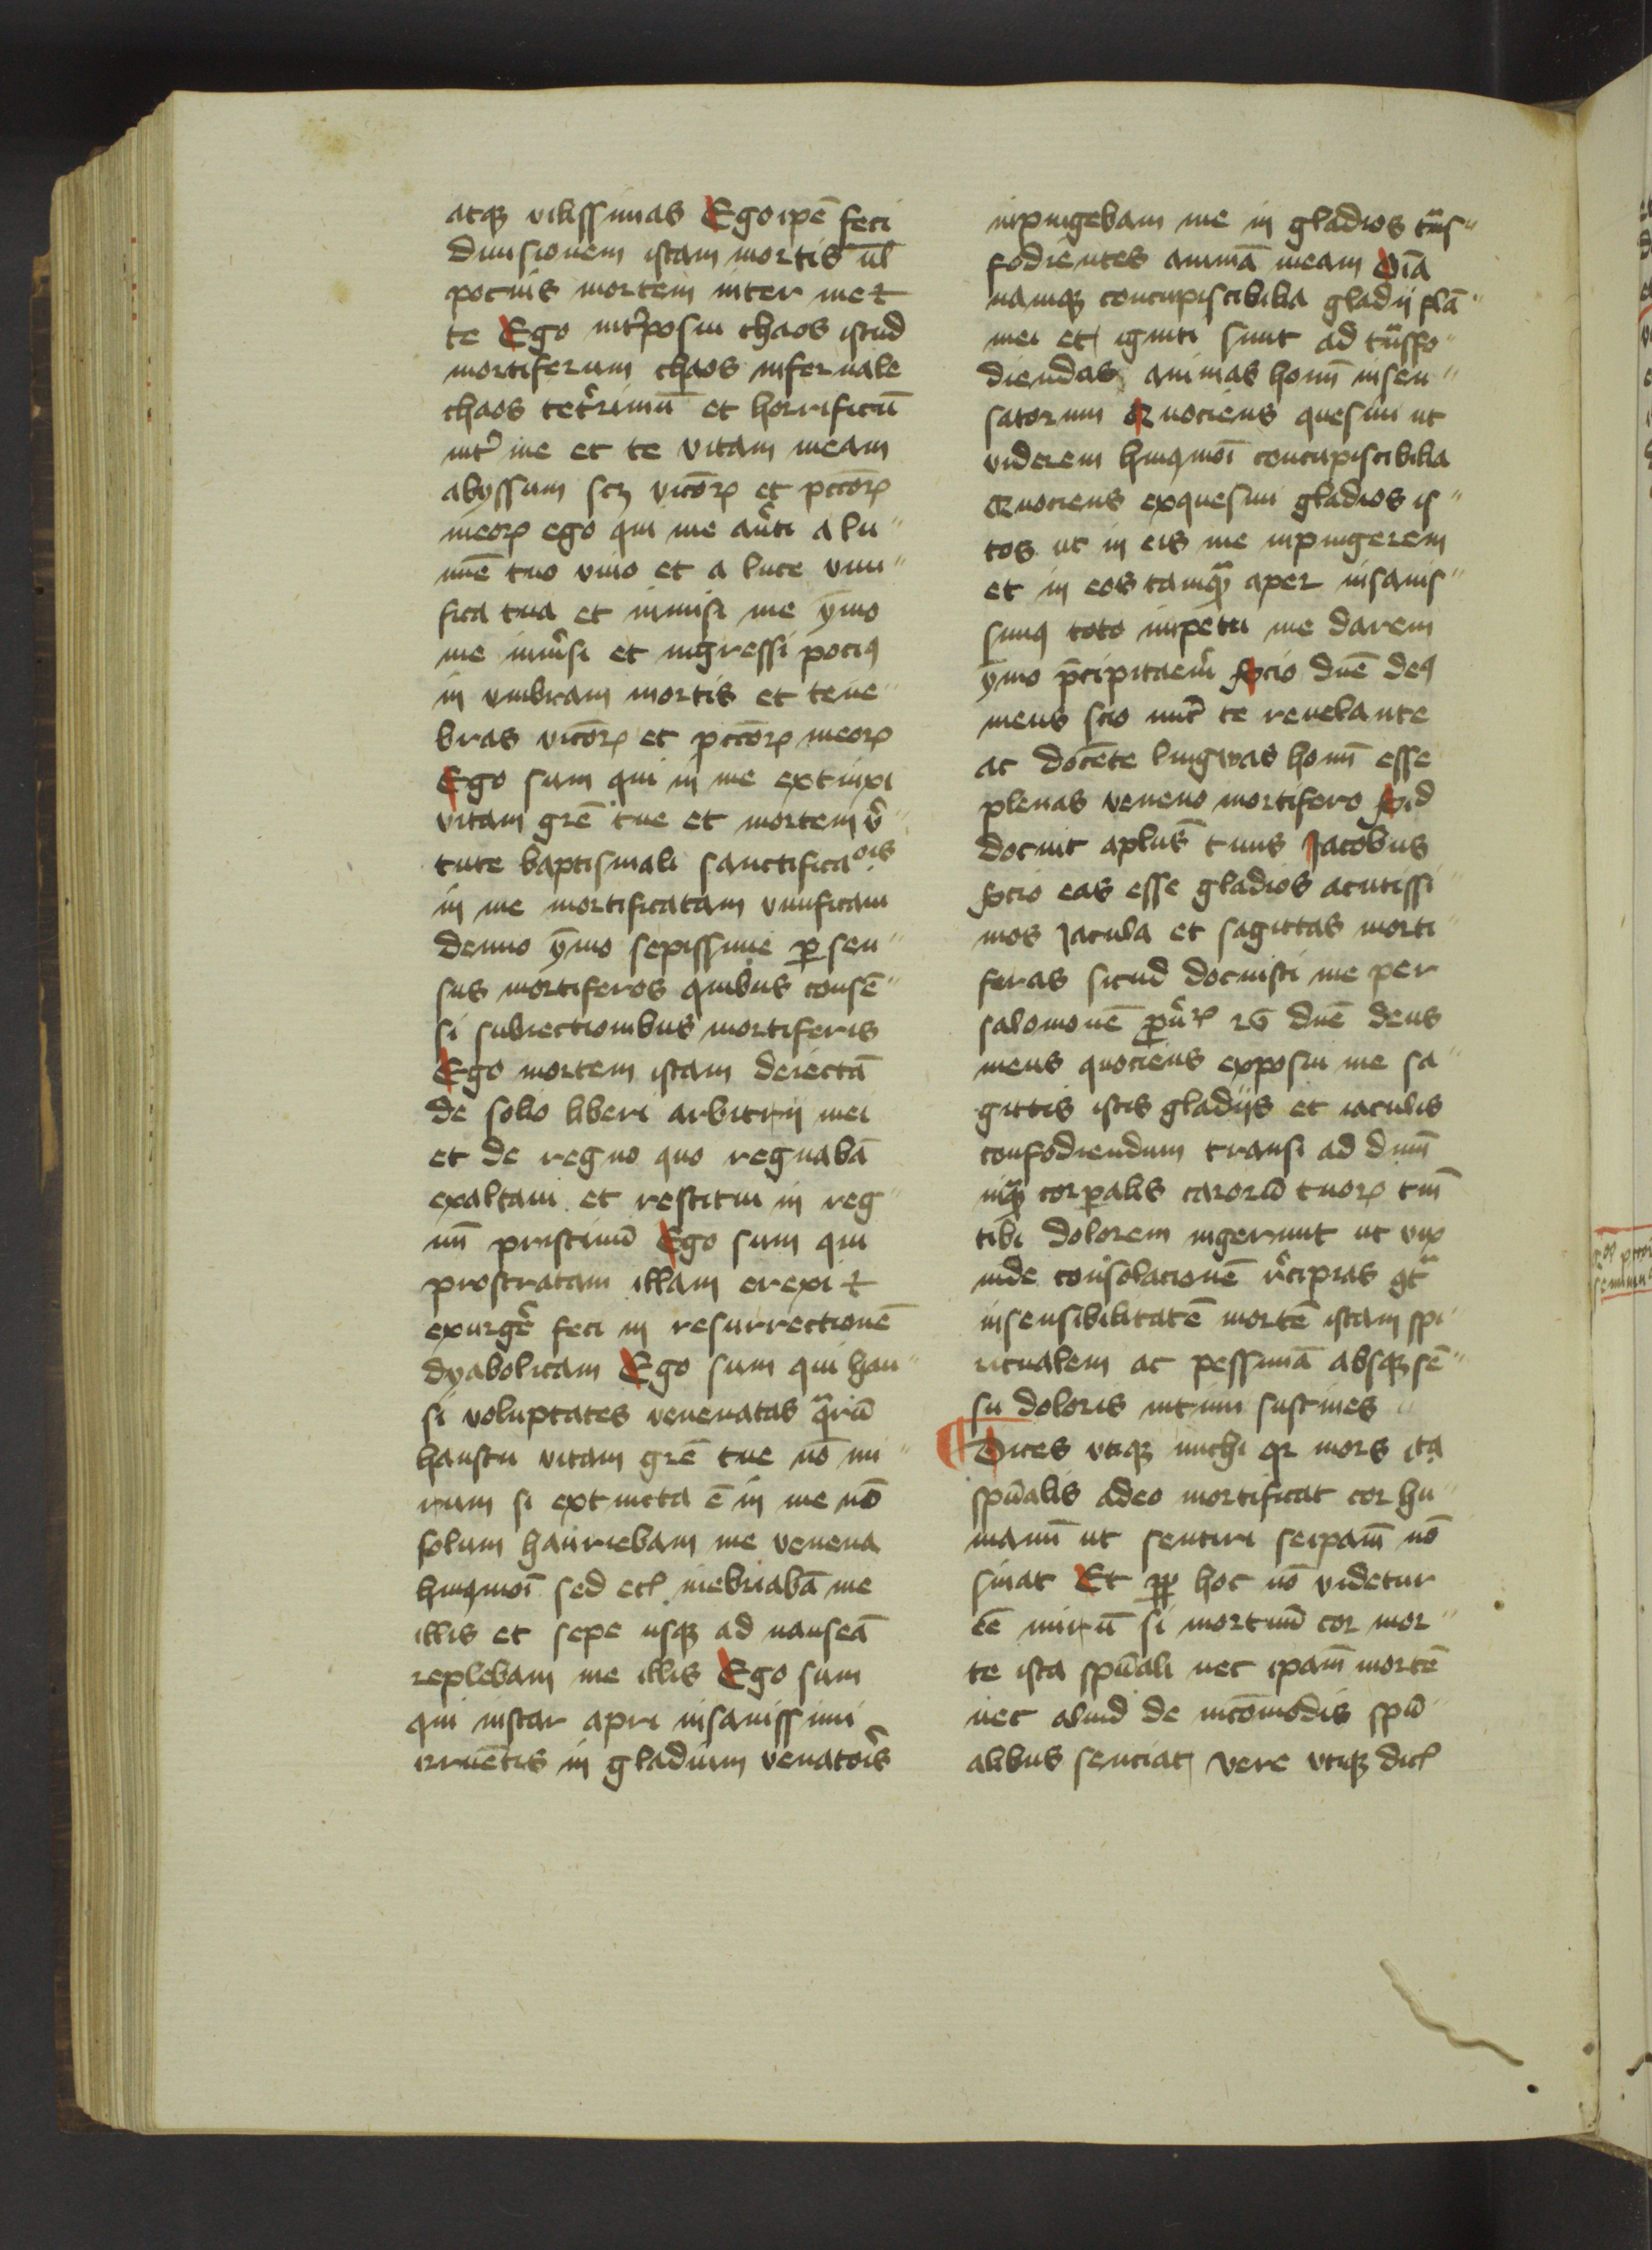 atqꝫ vilissimas Ego ipē feci
diuisionem istam mortis ul̄
pocius mortem inter me ⁊
te Ego int̾posui chaos istud
mortiferum chaos infernale
chaos tet̾rimū et horrificū
int̾ me et te vitam meam
abyssum scꝫ vicioꝝ et pcc̄oꝝ
meoꝝ ego qui me au̾ti a lu〃
mīe tuo viuo et a luce viui〃
fica tua et inmisi me ȳmo
me inmersi et ingressi pociꝰ
in vmbram mortis et tene〃
bras vicioꝝ et pcc̄oꝝ meoꝝ
Ego sum qui in me extinxi
vitam grē tue et mortem v̾〃
tute baptismali sanctificaōis
in me mortificatam viuificaui
denuo ȳmo sepissime ꝑ sen〃
sus mortiferos quibus consē〃
si subiectionibus mortiferis
Ego mortem istam deiectā
de solio liberi arbitrij mei
et de regno quo regnabā
exaltaui et restitui in reg〃
nū pristinū Ego sum qui
prostratam illam erexi ⁊
exurge̾ feci in resurrectionē
dyabolicam Ego sum qui hau〃
si voluptates venenatas qᵃrū
haustu vitam grē tue nō mi〃
rum si extincta ē in me nō
solum hauriebam me venena
huiꝰmōi sed ecꝉ inebriabā me
illis et sepe usqꝫ ad nauseā
replebam me illis Ego sum
qui instar apri insanissimi
irruētis in gladium venator̾s
inpingebam me in gladios tᵃns〃
fodientes animā meam Oīa
namqꝫ concupiscibilia gladij flā〃
mei et igniti sunt ad tᵃnsfo〃
diendas animas homī insen〃
satorum Quociens quesiui ut
viderem huiꝰmōi concupiscibilia
Quociens exquesiui gladios is〃
tos ut in eis me inpingerem
et in eos tamqᵃ aper insanis〃
simꝰ toto inpetu me darem
ȳmo p̄cipitarem̾ Scio dn̄e deꝰ
meus scio nūc te reuelante
ac docēte lingwas homī esse
plenas veneno mortifero Id
docuit aplūs tuus Jacobus
Scio eas esse gladios acutissi〃
mos Jacula et sagittas morti〃
feras sicud docuisti me per
salomonē dn̄e deus
meus quociens exposui me sa〃
gittis istis gladijs et iaculis
confodiendum transi ad
corꝑalis caroru tuoꝝ tm̄
tibi dolorem ingerunt ut vix
inde consolacionē r̾cipias
insensibilitatē mortē istam spi〃
ritualem ac pessimā absqꝫ sē〃
su doloris intimi sustines
¶ Dices vtiqꝫ michi qꝛ mors ita
spūalis adeo mortificat cor hu〃
manū ut sentiri seipam̄ nō
sinat Et ꝓp hoc nō videtur
eē mirū si mortuū cor mor〃
te ista spūali nec ipam̄ mortē
nec aliud de incōmodis spū〃
alibus senciat vere vtiqꝫ dicꝉ